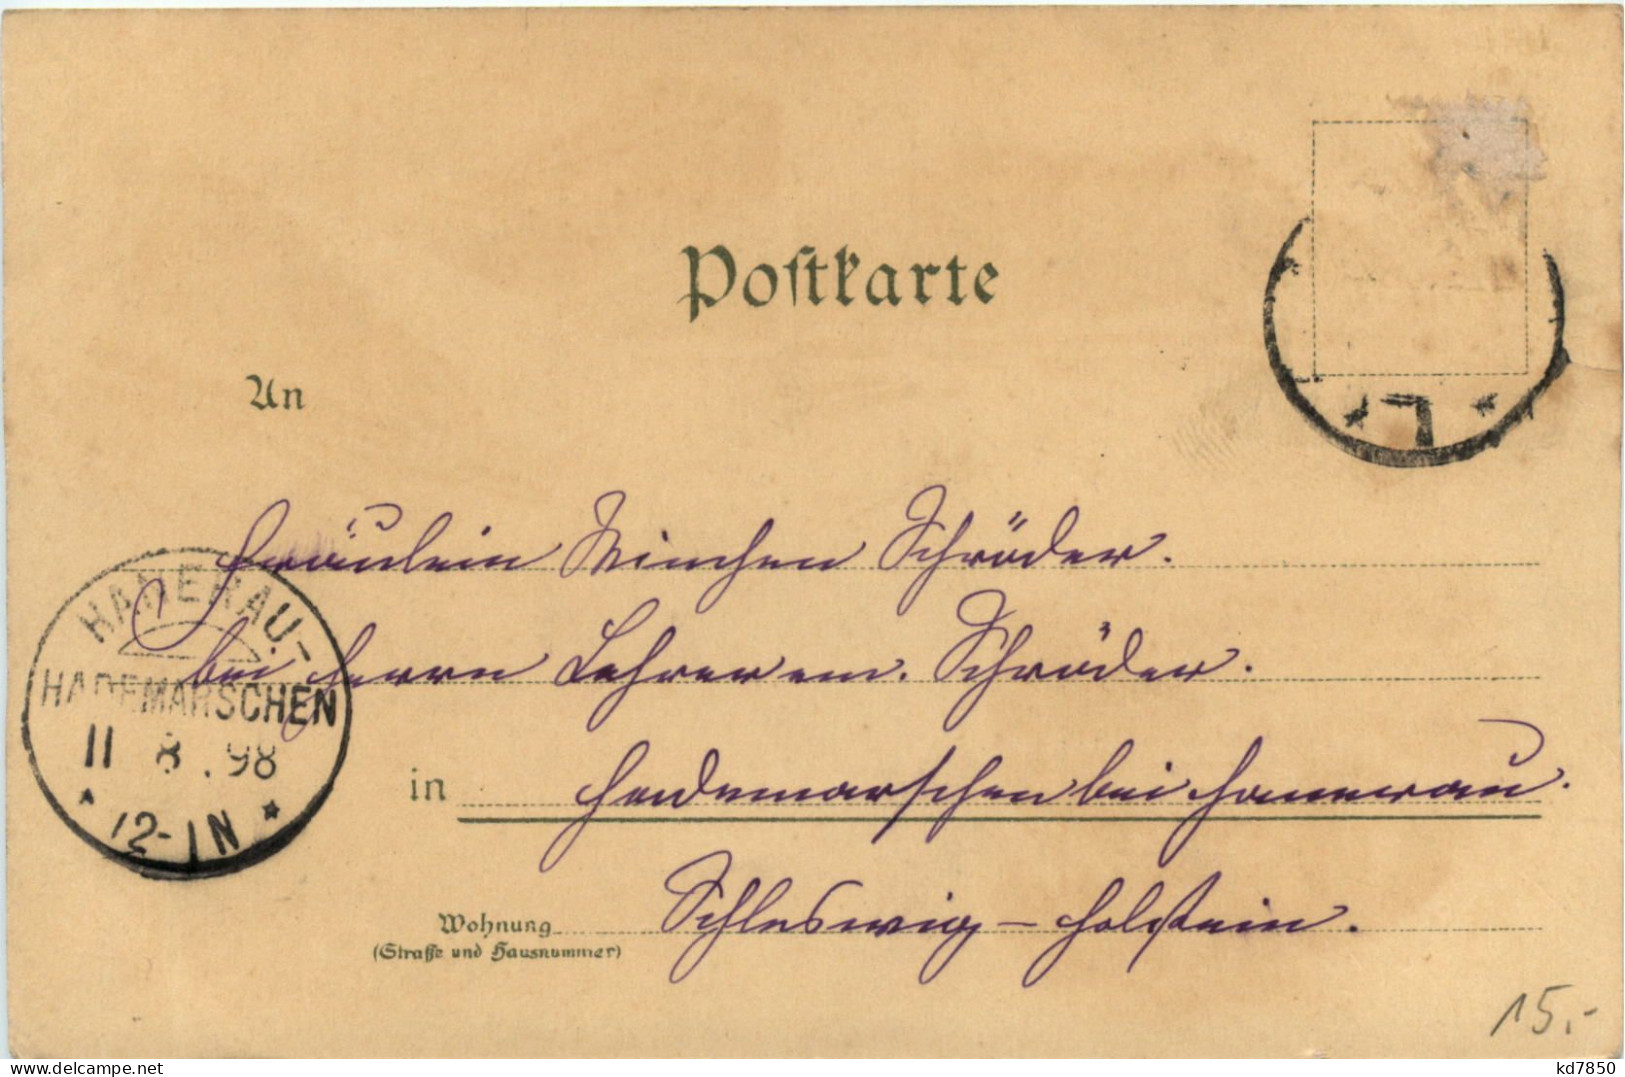 Postkarte
An
Fräulein Minchen Schröder.
bei Herrn Lehrer em. Schröder.
in Hademarschen bei Hanerau.
Schleswig-Holstein.
Wohnung
(Straße und Hausnummer)
HANERAU-
HADEMARSCHEN
11 8.98
* 12-1N *
15,-
delcampe.net
kd7850